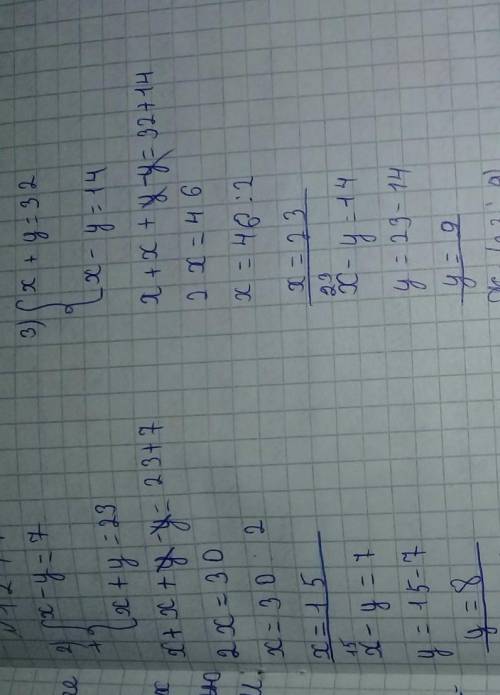 2) { x - y = 7
+ { x + y = 23
x + x + y - y = 23 + 7
2x = 30
x = 30 : 2
x = 15
15
x - y = 7
y = 15 - 7
y = 8
3) { x + y = 32
{ x - y = 14
x + x + y - y = 32 + 14
2x = 46
x = 46 : 2
x = 23
23
x - y = 14
y = 23 - 14
y = 9